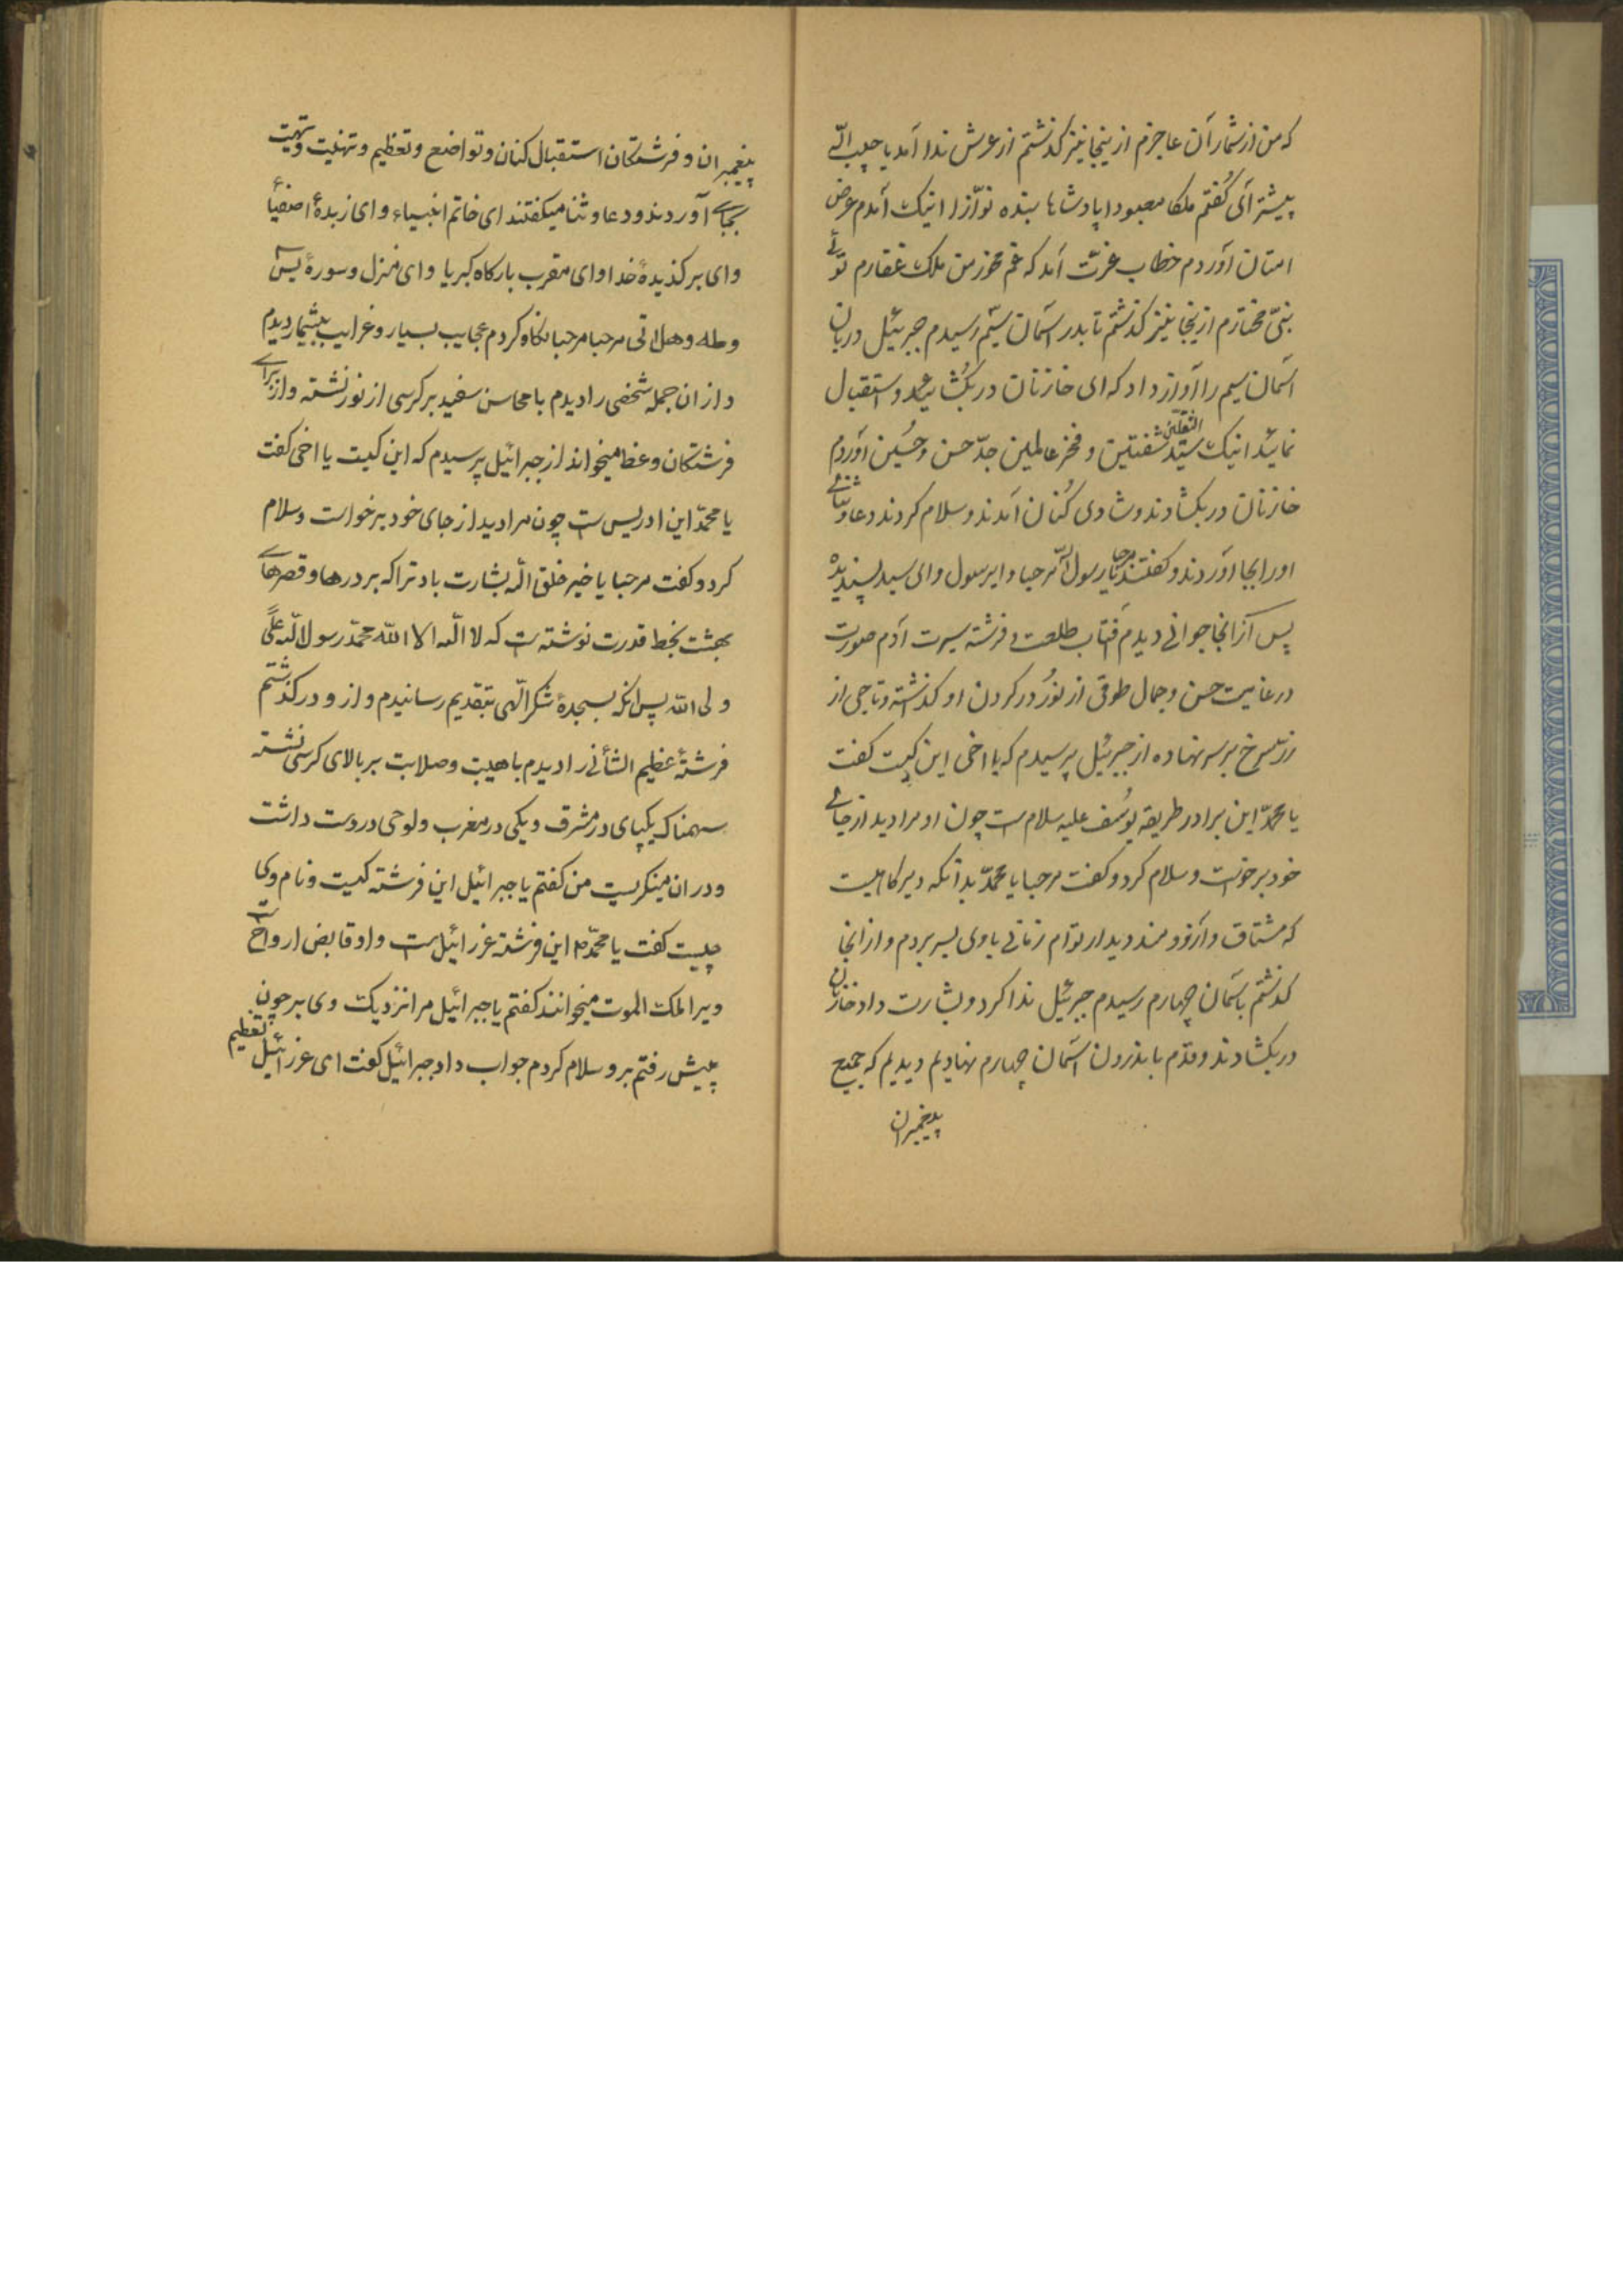 که من از شمار آن عاجزم از ینجا نیز کذشتم از عرش ندا آمد یا حبیب الّی
پیشتر آئی کُفتم ملکا معبودا پادشاها بنده نوّازا اینک آمدم عرض
امتان آوردم خطاب عزّت آمد که غم مخور من ملک غفّارم تو
نبیّ مختارم از ینجا نیز کذشتم تا بدر آسمان سیّم رسیدم جبرئیل دربان
آسمان سیم را آواز داد که ای خازنان در بکُشائید و استقبال
نمائید اینک سیّد الثقلین و فخر عالمین جدّ حسن و حُسین آوردم
خازنان در بکشادند و شادی کُنان آمدند و سلام کردند دعا و ثنای
اورا بجا آوردند و کفتند مرحبا یا رسول اللّه مرحبا و ای رسول وای سید پسندیده
پس از آنجا جوانی دیدم آفتاب طلعت و فرشته سیرت آدم صورت
در غایت حسن و جمال طوقی از نوُر در کردن او کذشته و تاجی از
زر سرخ بر سر نهاده از جبرئیل پرسیدم که یا اخی این کیست کفت
یا محمّد این برادر طریقه یوسُف علیه سلام است چون او مرا دید از جای
خود برخواست و سلام کرد و کفت مرحبا یا محمّد بدانکه دیر کاهیست
که مشتاق و آرزومند دیدار توام زمانی باوی بسر بردم و از انجا
کذشتم باسمان چهارم رسیدم جبرئیل ندا کرد و بشارت داد خازنان
در بکشادند و قدم باندرون اسمان چهارم نهادیم دیدیم که جمیع
پیغمبران
پیغمبران و فرشتکان استقبال کنان و تواضع و تعظیم و تهنیت و تحیت
بجای آوردند و دعا و ثنا میکفتند ای خاتم انبیاء و ای زبدهٔ اصفیأ
وای برکذیدهٔ خدا وای مقرب بارکاه کبریا وای منزل و سورهٔ یس
و طه و هل اتی مرحبا مرحبا نکاه کردم عجایب بسیار و غرایب بیشمار دیدم
و از ان جمله شخصی را دیدم با محاسن سفید بر کرسی از نور نشته و از برای
فرشتکان وعظ میخواند از جبرائیل پرسیدم که این کیست یا اخی کفت
یا محمّد این ادریس است چون مرا دید از جای خود برخواست و سلام
کرد و کفت مرحبا یا خیر خلق اللّه بشارت باد ترا که بر درها و قصرهای
بهشت بخط قدرت نوشته است که لا الّه الا اللّه محمّد رسول اللّه علیً
ولی اللّه پس انکه بسجدهٔ شکر الّهی بتقدیم رسانیدم و از و در کذشتم
فرشتهٔ عظیم الشأنی را دیدم با هیبت و صلابت بر بالای کرسی نشته
سهمناک یکپای در مشرق و یکی در مغرب و لوحی در دست داشت
و در ان مینکریست من کفتم یا جبرائیل این فرشته کیست و نام وی
چیست کفت یا محمّد این فرشته عزرائیل است و او قابض ارواح است
ویرا ملک الموت میخوانند کفتم یا جبرائیل مرا نزدیک وی بر چون
پیش رفتم برو سلام کردم جواب داد جبرائیل کفت ای عزرائیل تعظیم